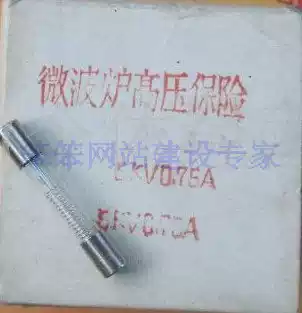 微波炉高压保险
笨笨网站建设专家
5KV0.75A
5KV0.75A